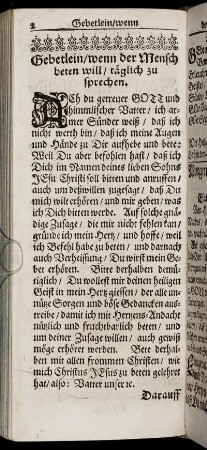 2 Gebetlein/wenn
Gebetlein/wenn der Mensch
beten will/ täglich zu
sprechen.
ACh du getreuer GOTT und
himmlischer Vatter/ ich ar-
mer Sünder weiß/ daß ich
nicht werth bin/ daß ich meine Augen
und Hände zu Dir auffhebe und bete:
Weil Du aber befohlen hast/ daß ich
Dich im Namen deines lieben Sohns
JEsu Christi soll bitten und anruffen/
auch um deßwillen zugesagt/ daß Du
mich wilt erhören/ und mir geben/ was
ich Dich bitten werde. Auf solche gnä-
dige Zusage/ die mir nicht fehlen kan/
gründe ich mein Hertz/ und hoffe/ weil
ich Befehl habe zu beten/ und darnach
auch Verheissung/ Du wirst mein Ge-
bet erhören. Bitte derhalben demü-
tiglich/ Du wollest mir deinen heiligen
Geist in mein Hertz giessen/ der alle un-
nütze Sorgen und böse Gedancken aus-
treibe/ damit ich mit Hertzens-Andacht
nützlich und fruchtbarlich beten/ und
um deiner Zusage willen/ auch gewiß
möge erhöret werden. Bete derhal-
ben mit allen frommen Christen/ wie
mich Christus JEsus zu beten gelehret
hat/ also: Vatter unser ꝛc.
Darauff